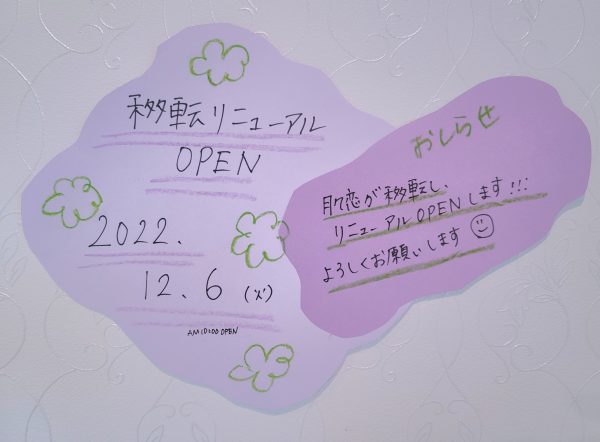 移転リニューアル
OPEN
2022.
12.6(火)
AM10:00 OPEN
おしらせ
肌恋が移転し、
リニューアルOPENします!!!
よろしくお願いします